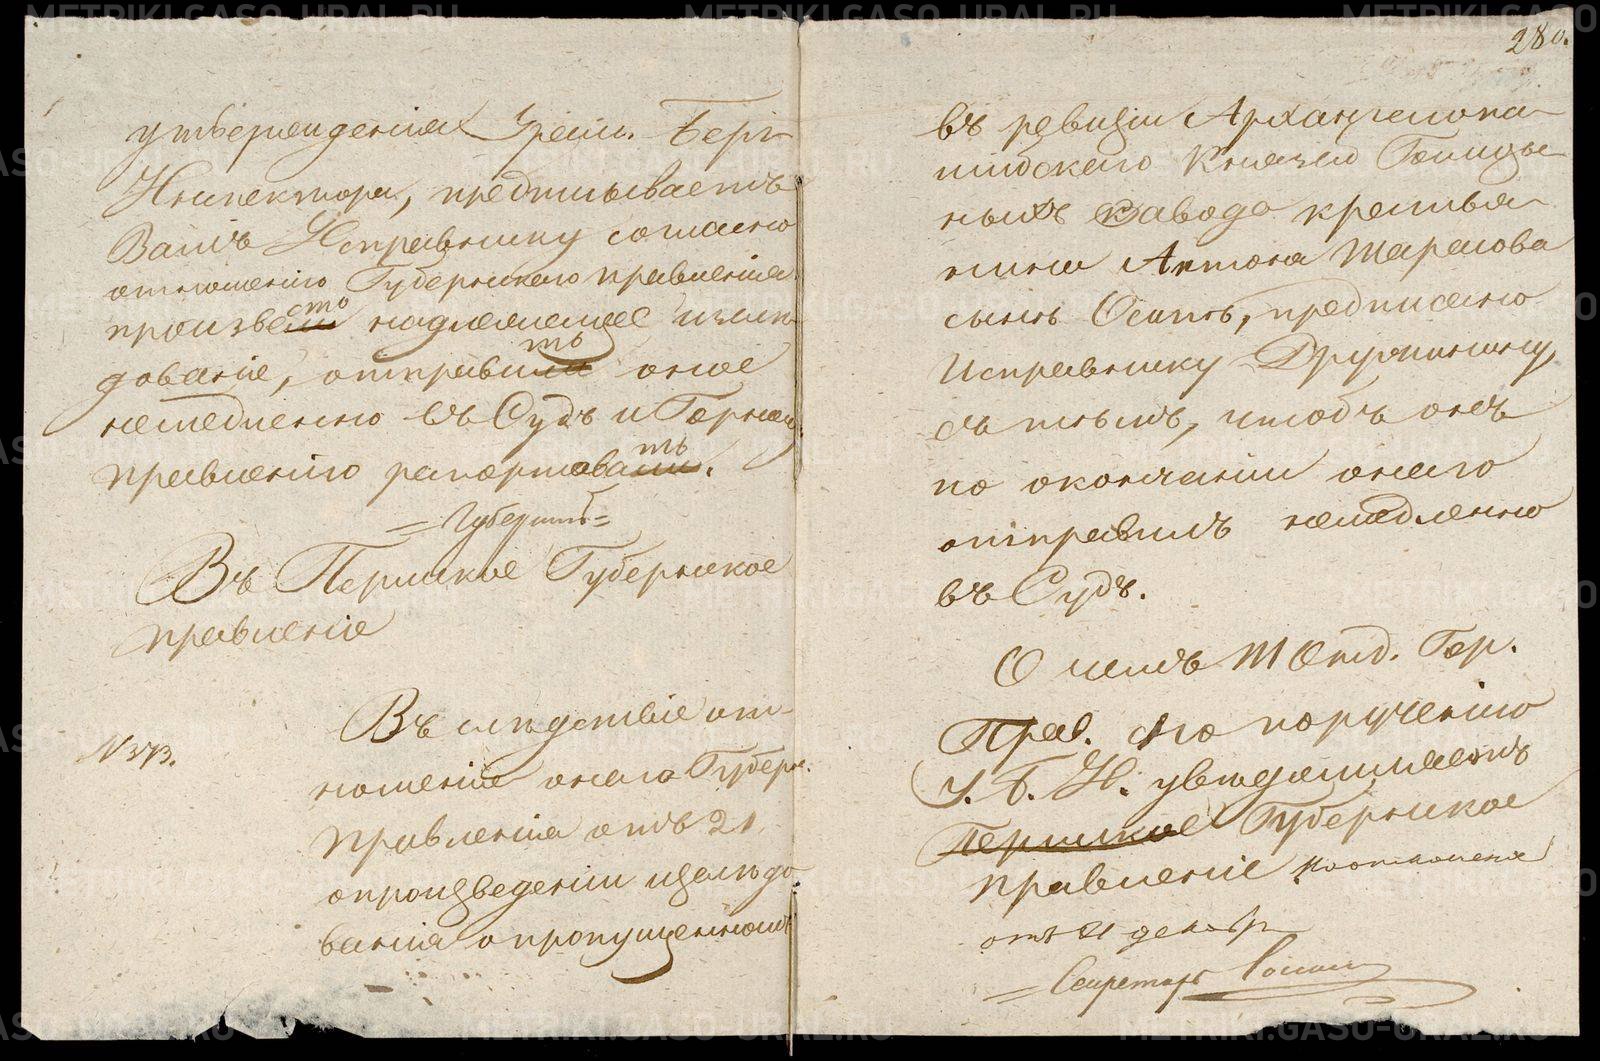 утвержденiя Урал. Берг
Инспектора, предписываетъ
Вамъ Исправнику согласно
отношенiю Губернскаго правленiя
произвести надлежащее изслѣ-
дованiе, отправить оное
немедленно въ Судъ и Горному
правленiю рапортовать.
= Губернш =
Въ Пермское Губернское
правленiе
№ 373.
Въ слѣдствiе от-
ношенiя онаго Губерн.
Правленiя отъ 21
о произведенiи изслѣдо-
ванiя о пропущенномъ
280.
въ ревизiи Архангелопа-
шiйскаго Князей Голицы-
ныхъ Завода крестья-
нина Антона Тарасова
сынѣ Осипѣ, предписано
Исправнику Дружинину,
съ тѣмъ, чтобъ онъ
по окончанiи онаго
отправилъ немедленно
въ Судъ.
О чемъ III Отд. Гор.
Прав. по порученiю
У. Б. И. увѣдомляетъ
Пермское Губернское
Правленiе на отношенiе
отъ 21 декабр
= Секретарь